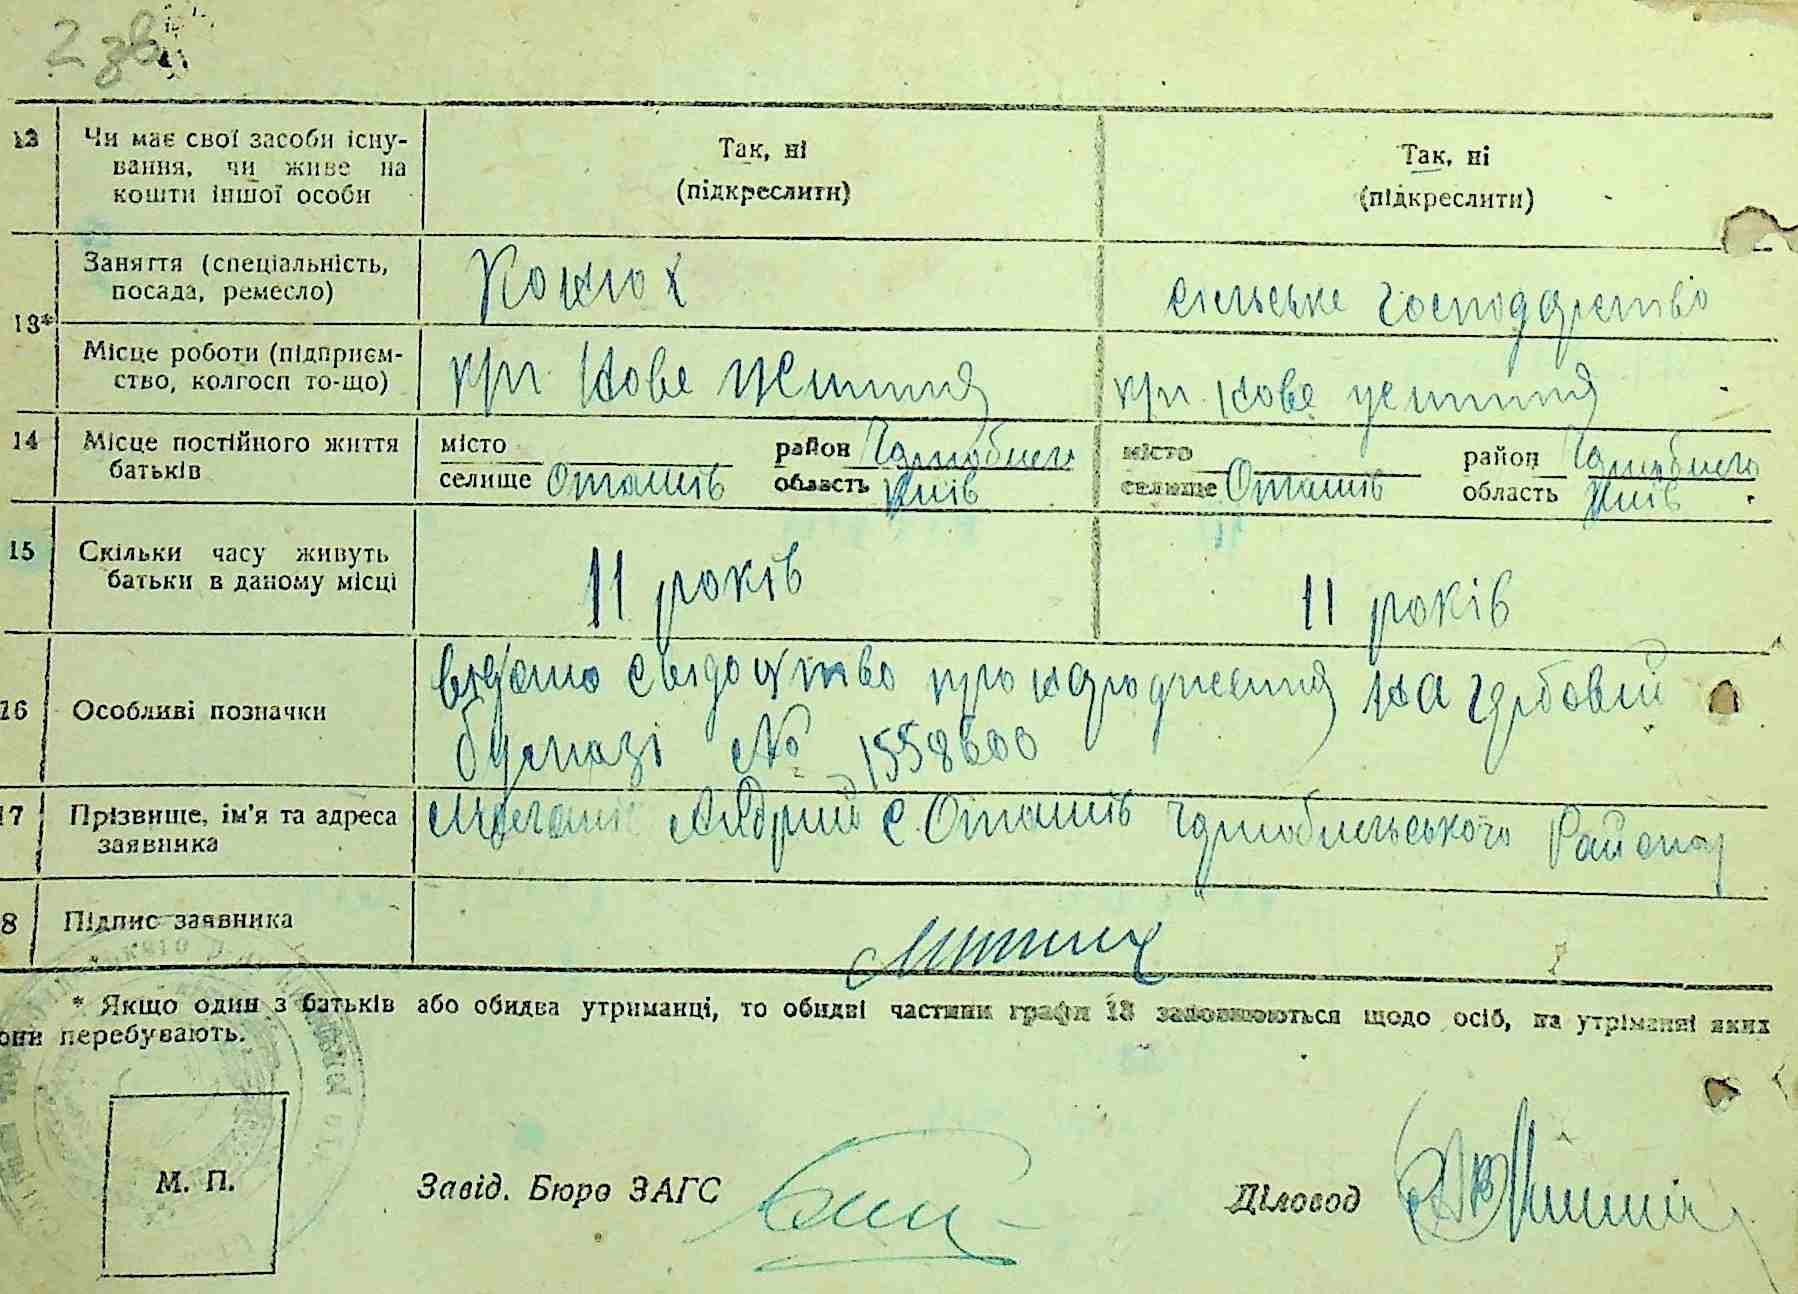 2 зв
12 Чи має свої засоби існу-
вання, чи живе на
кошти іншої особи
Так, ні
(підкреслити)
Так, ні
(підкреслити)
13*
Заняття (спеціальність,
посада, ремесло)
Конюх
сільське господарство
Місце роботи (підприєм-
ство, колгосп то-що)
к/п. Нове життя
к/п. Нове життя
14 Місце постійного життя
батьків
місто
селище Оташів
район Чорнобиль
область Київ
місто
селище Оташів
район Чорнобиль
область Київ
15 Скільки часу живуть
батьки в даному місці
11 років
11 років
16 Особливі позначки
видано свідоцтво про народження на гербовій
бумазі № 1558600
17 Прізвище, ім'я та адреса
заявника
Андрій с. Оташів Чорнобильського Району
8 Підпис заявника
* Якщо один з батьків або обидва утриманці, то обидві частини графи 13 заповнюються щодо осіб, на утриманні яких
они перебувають.
М. П.
Завід. Бюро ЗАГС
Діловод